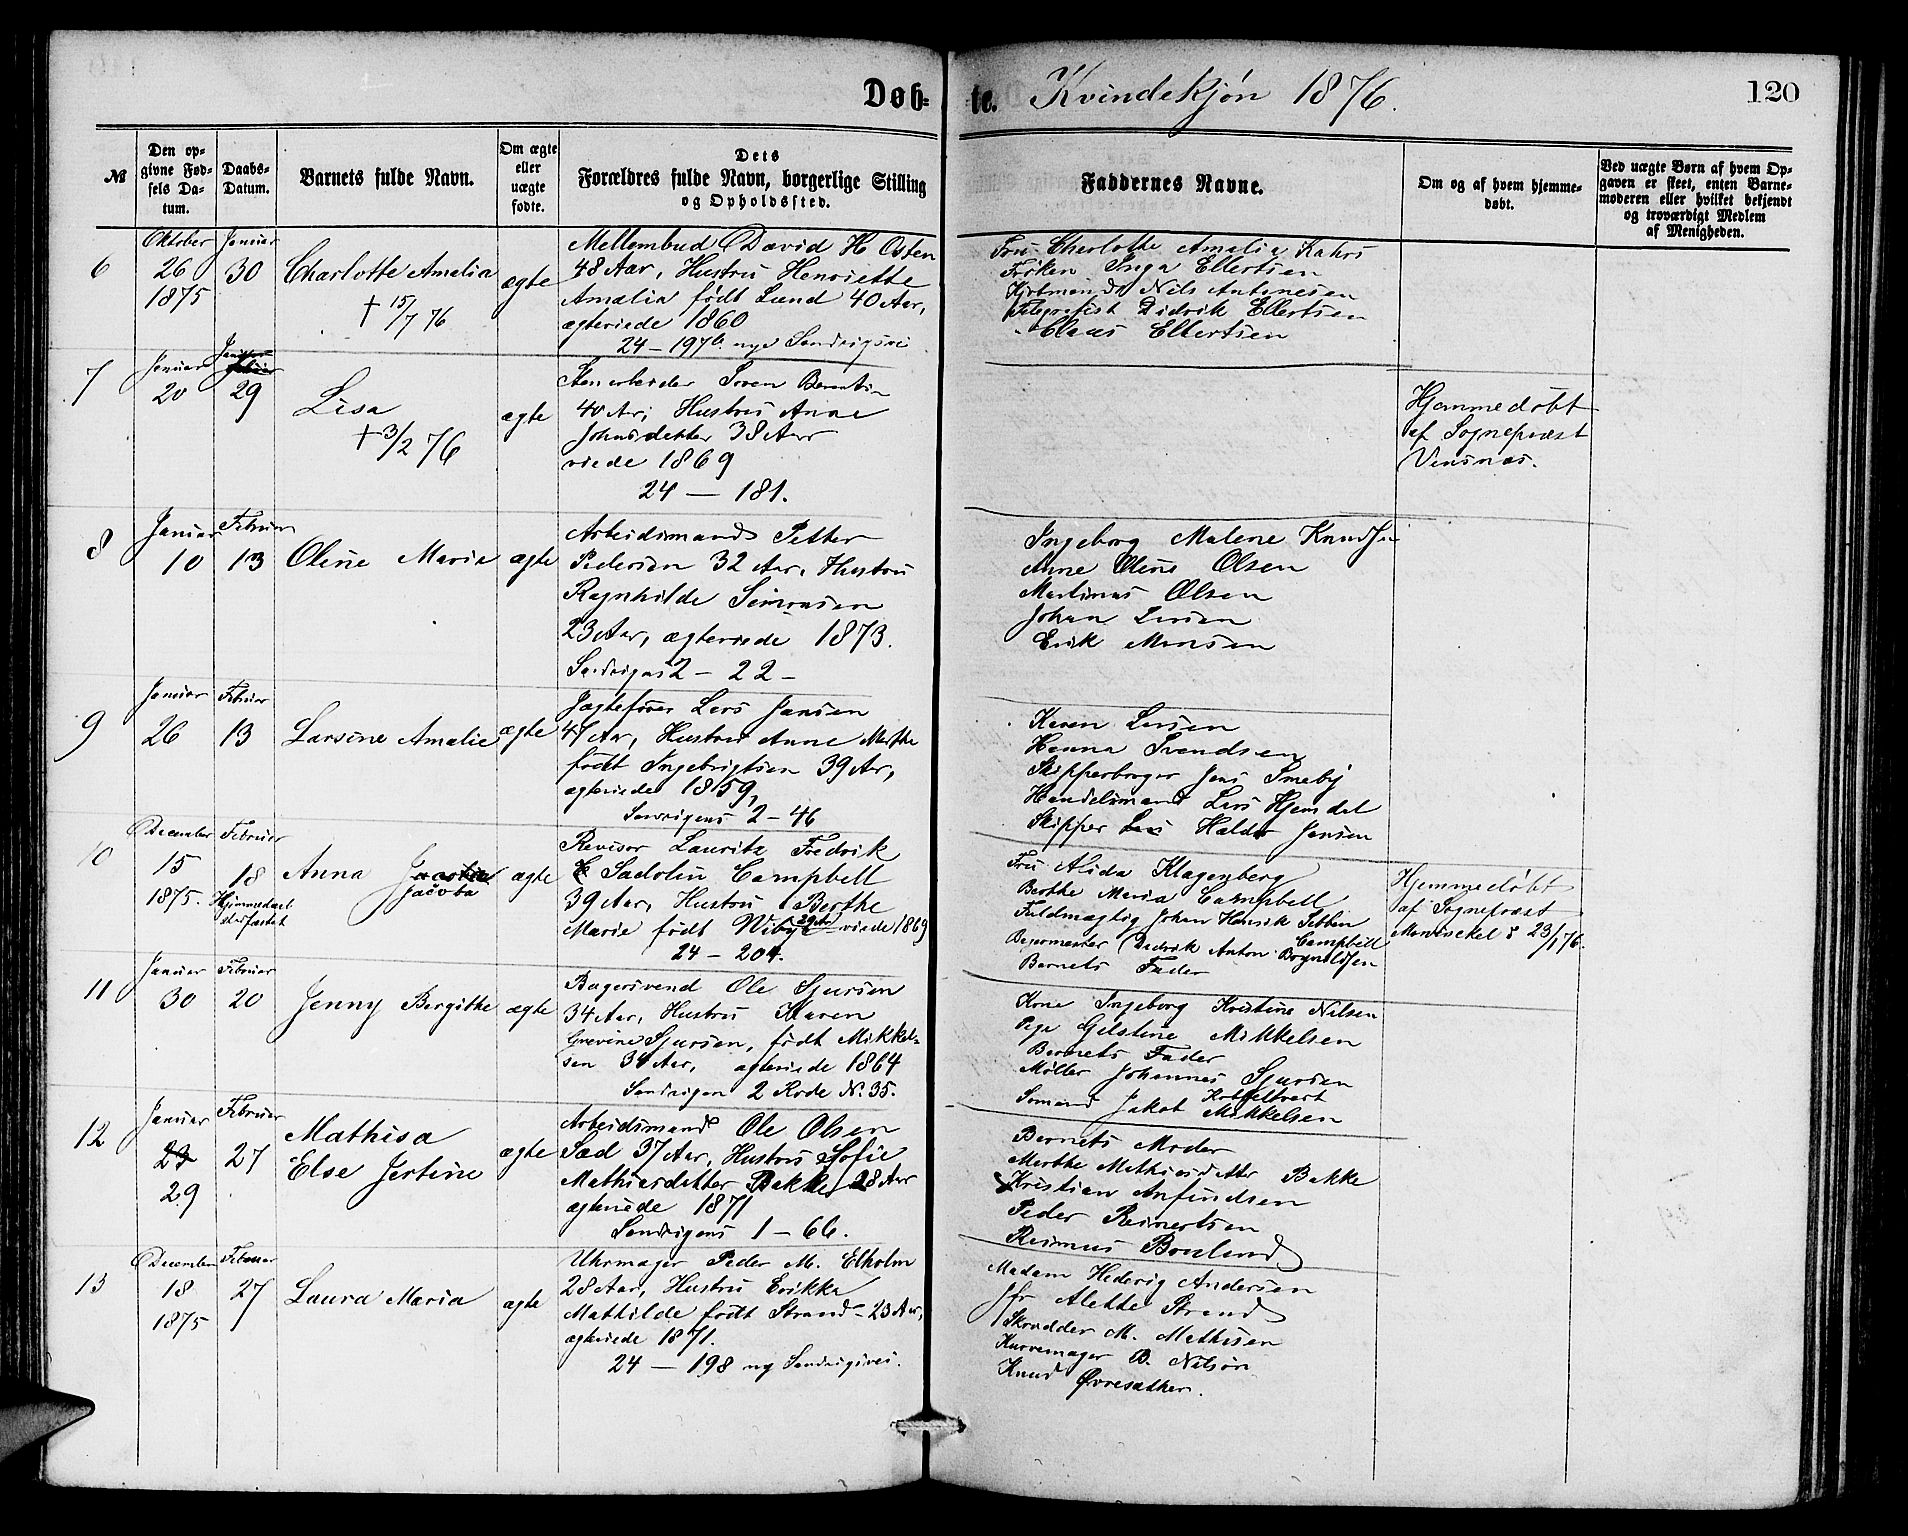 Døb-te. Kvindekjøn 1876.
120
№
Den opgivne Fødsels Datum.
Daabs-Datum.
Barnets fulde Navn.
Om ægte eller uægte fødte.
Dets Forældres fulde Navn, borgerlige Stilling og Opholdssted.
Faddernes Navne.
Om og af hvem hjemmedøbt.
Ved uægte Børn af hvem Opgaven er skeet, enten Barnemoderen eller hvilket bekjendt og troværdigt Medlem af Menigheden.
6
Oktober
26
1875
Januar
30
Charlotte Amalia
+ 15/7 76
ægte
Mellembud David H. Osten
48 Aar, Hustru Henriette
Amalia født Lund 40 Aar,
ægteviede 1860
24 – 197 b. nye Sandvigsvei
Fru Charlotte Amalia Kahrs
Frøken Inga Ellertsen
Nils Antonesen
Telegrafist Didrik Ellertsen
Claus Ellertsen
7
Januar
20
Januar
29
Lisa
+ 3/2 76
ægte
Stenarbeider Søren Berntsen
40 Ar, Hustru Anne
Johnsdatter 38 Aar
viede 1869
24 — 181.
Hjemmedøbt
af Sogneprest
8
Januar
10
Februar
13
Oline Marie
ægte
Arbeidsmand Petter
Pedersen 32 Aar, Hustru
Ragnhilde Simonsen
23 Aar, ægteviede 1873.
Sandvigens 2 – 22 –
Ingeborg Malene Knudsen
Anne Oline Olsen
Martinus Olsen
Johan Larsen
Erik Monsen
9
Januar
26
Februar
13
Larsine Amalie
ægte
Jagtefører Lars Jansen
47 Aar, Hustru Anne Marthe
født Ingebrigtsen 39 Ar,
ægteviede 1859,
Sandvigens 2 – 46
Karen Larsen
Hanna Svendsen
Skipperborger Jens Smeby
Handelsmand Lars Hjemdal
Skipper Haldor Jansen
10
December
15
1875.
Februar
18
Hjemmedaab
stadfæstet
Anna
Jacoba
ægte
Revisor Lauritz Fredrik
Sadolin Campbell
39 Aar, Hustru Berthe
Marie født Wiby 29 Ar viede 1869
24 – 204.
Fru Alida Klagenberg
Berthe Maria Campbell
Fuldmægtig Johan Henrik Sebbin
Campbell
Bagermester Didrik Anton Brynildsen
Barnets Fader
Hjemmedøbt
af Sogneprest
23/1 76.
11
Januar
30
Februar
20
Jenny Bergithe
ægte
Bagersvend Ole Sjursen
34 Aar, Hustru Maren
Grevine Sjursen, født Mikkel-
sen 34 Aar, ægteviede 1864
Sandvigen 2 Rode N. 35.
Kone Ingeborg Kristine Nilsen
Pige Gelstine Mikkelsen
Barnets Fader
Møller Johannes Sjursen
Sømand Jakob Mikkelsen
12
Januar
23
29
Februar
27
Mathisa
Else Jertine
ægte
Arbeidsmand Ole Olsen
Sæd 37 Aar, Hustru Sofie
Mathiasdatter Bakke 28 Aar
ægteviede 1871
Sandvigens 1 – 66.
Barnets Moder
Marthe Mathiasdatter Bakke
Kristian Anfindsen
Peder Reinertsen
Rasmus
13
December
18
1875
Februar
27
Laura Maria
ægte
Uhrmager Peder M. Elholm
28 Aar, Hustru Erikka
Mathilde født Strand – 23 Aar,
ægteviede 1871.
24 — 198 ny Sandvigsvei.
Madam Hedevig Andersen
Jfr Alette Strand
Skrædder M. Mathisen
Kurvemager B. Nilsøn
Knud Øvresæther.